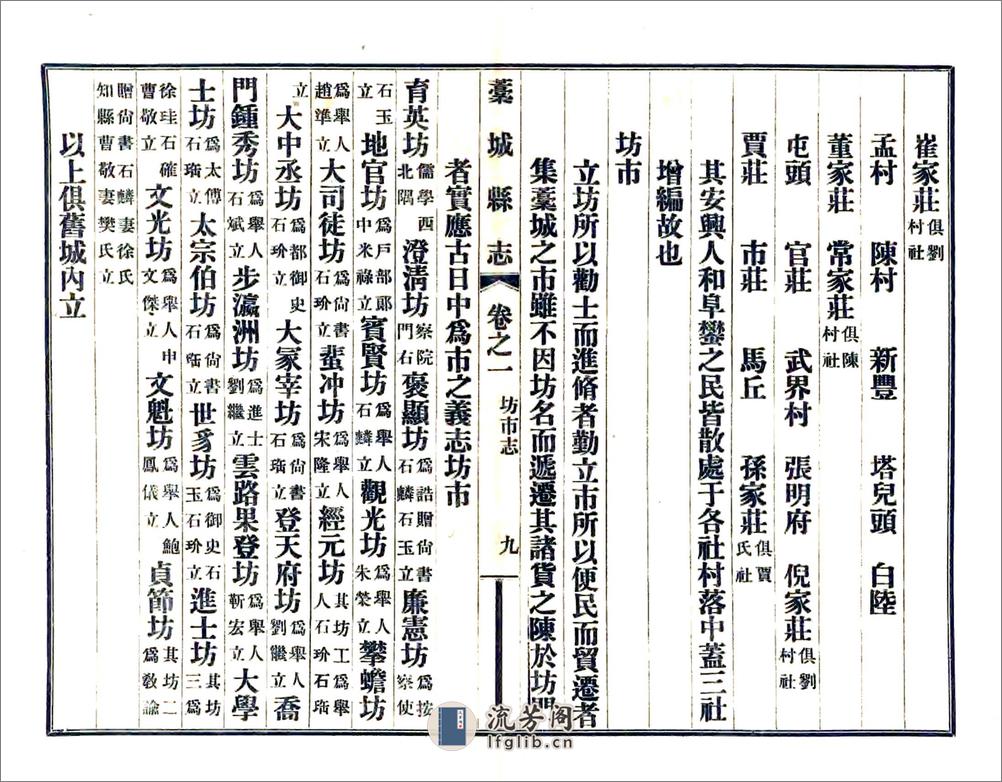 崔家莊俱劉村社
孟村　陳村　新豐　塔兒頭　白陸
董家莊　常家莊俱陳村社
屯頭　官莊　武界村　張明府　倪家莊俱劉村社
賈莊　市莊　馬丘　孫家莊俱賈氏社
其安興人和阜鑾之民皆散處于各社村落中蓋三社
增編故也
坊市
立坊所以勸士而進脩者勤立市所以便民而貿遷者
集藁城之市雖不因坊名而遞遷其諸貨之陳於坊
藁城縣志　卷之一　坊市志　九
者實應古日中爲市之義志坊市
育英坊儒學西北隅　澄清坊察院門右　褒顯坊爲誥贈尚書石麟石玉立　廉憲坊爲按察使
石玉立　地官坊爲戶部郞中米祿立　賓賢坊爲舉人石麟立　觀光坊爲舉人朱榮立　攀蟾坊
爲舉人趙準立　大司徒坊爲尚書石玠立　蜚冲坊爲舉人宋隆立　經元坊其坊工爲舉人石玠石瑎
立　大中丞坊爲都御史石玠立　大冢宰坊爲尚書石瑎立　登天府坊爲舉人劉繼立　喬
門鍾秀坊爲舉人石斌立　步瀛洲坊爲進士劉繼立　雲路果登坊爲舉人靳宏立　大學
士坊爲太傅石瑎立　太宗伯坊爲尚書石瑎立　世豸坊爲御史石玉石玠立　進士坊其坊三爲
徐珪石確曹敬立　文光坊爲舉人申文傑立　文魁坊爲舉人鮑鳳儀立　貞節坊其坊二爲敎諭
贈尚書石麟妻徐氏知縣曹敬妻樊氏立
以上俱舊城內立
流芳阁
lfglib.cn